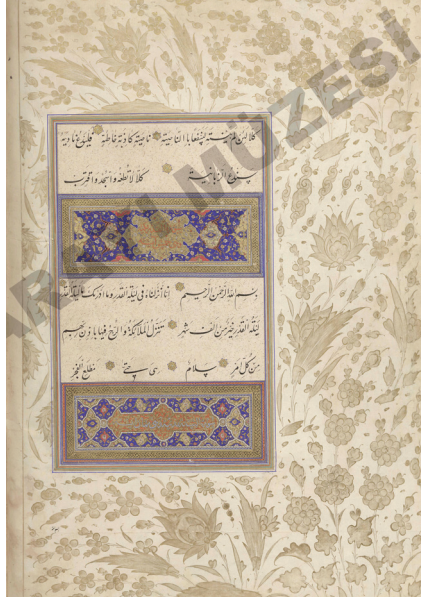 كلا لئن لم ينته لنسفعا بالناصية ناصية كاذبة خاطئة فليدع ناديه
سندع الزبانية كلا لا تطعه واسجد واقترب
بسم الله الرحمن الرحيم انا انزلناه في ليلة القدر وما ادريك ما ليلة القدر
ليلة القدر خير من الف شهر تنزل الملائكة والروح فيها باذن ربهم
من كل امر سلام هي حتى مطلع الفجر
MÜZESİ